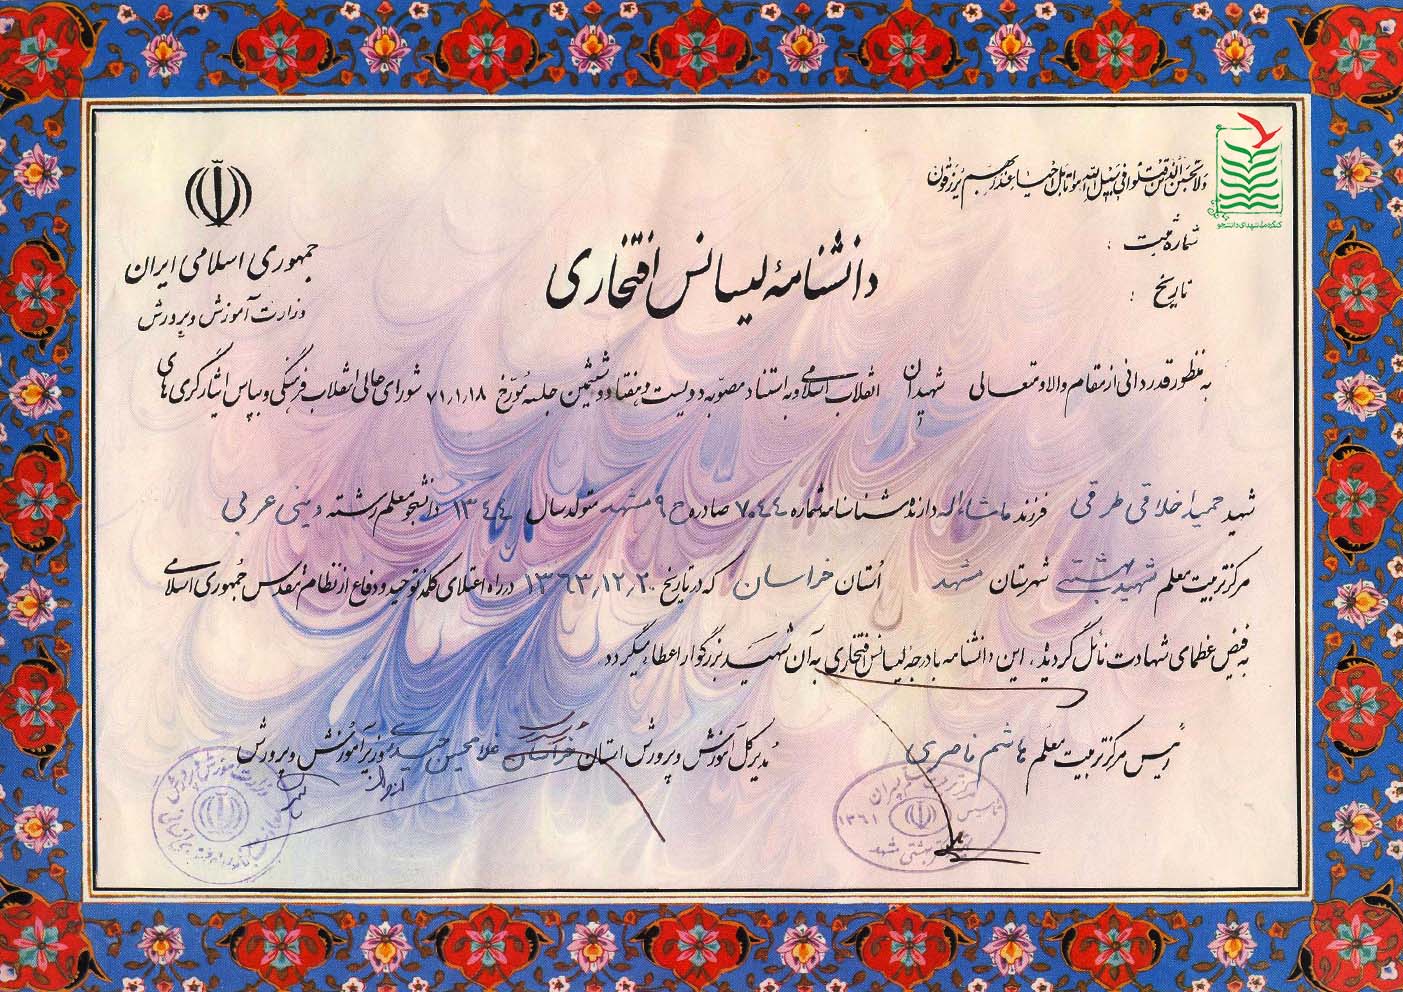 ولا تحسبن الذین قتلوا فی سبیل الله امواتا بل احیاء عند ربهم یرزقون
کنگره ملی شهدای دانشجو
شماره ثبت :
تاریخ :
جمهوری اسلامی ایران
وزارت آموزش و پرورش
دانشنامهٔ لیسانس افتخاری
به منظور قدردانی از مقام والا و متعالی شهیدان انقلاب اسلامی و به استناد مصوبه دویست و هفتاد و ششمین جلسه مورّخ ۷۱٫۱٫۱۸ شورای عالی انقلاب فرهنگی و بپاس ایثارگری های
شهید حمید اخلاقی طرقی فرزند ماشاءاله دارنده شناسنامه شماره ۷۰۴۴ صادره ح ۹ مشهد متولد سال ۱۳۴۴ دانشجو معلم رشته دینی عربی
مرکز تربیت معلم شهید بهشتی شهرستان مشهد استان خراسان که در تاریخ ۱۳۶۳٫۱۲٫۲۰ در راه اعتلای کلمه توحید و دفاع از نظام مقدس جمهوری اسلامی
به فیض عظمای شهادت نائل گردید، این دانشنامه با درجه لیسانس افتخاری به آن شهید بزرگوار اعطاء میگردد
رئیس مرکز تربیت معلم هاشم ناصری
مدیر کل آموزش و پرورش استان خراسان غلامحسین حیدری
وزیر آموزش و پرورش
۱۳۶۱